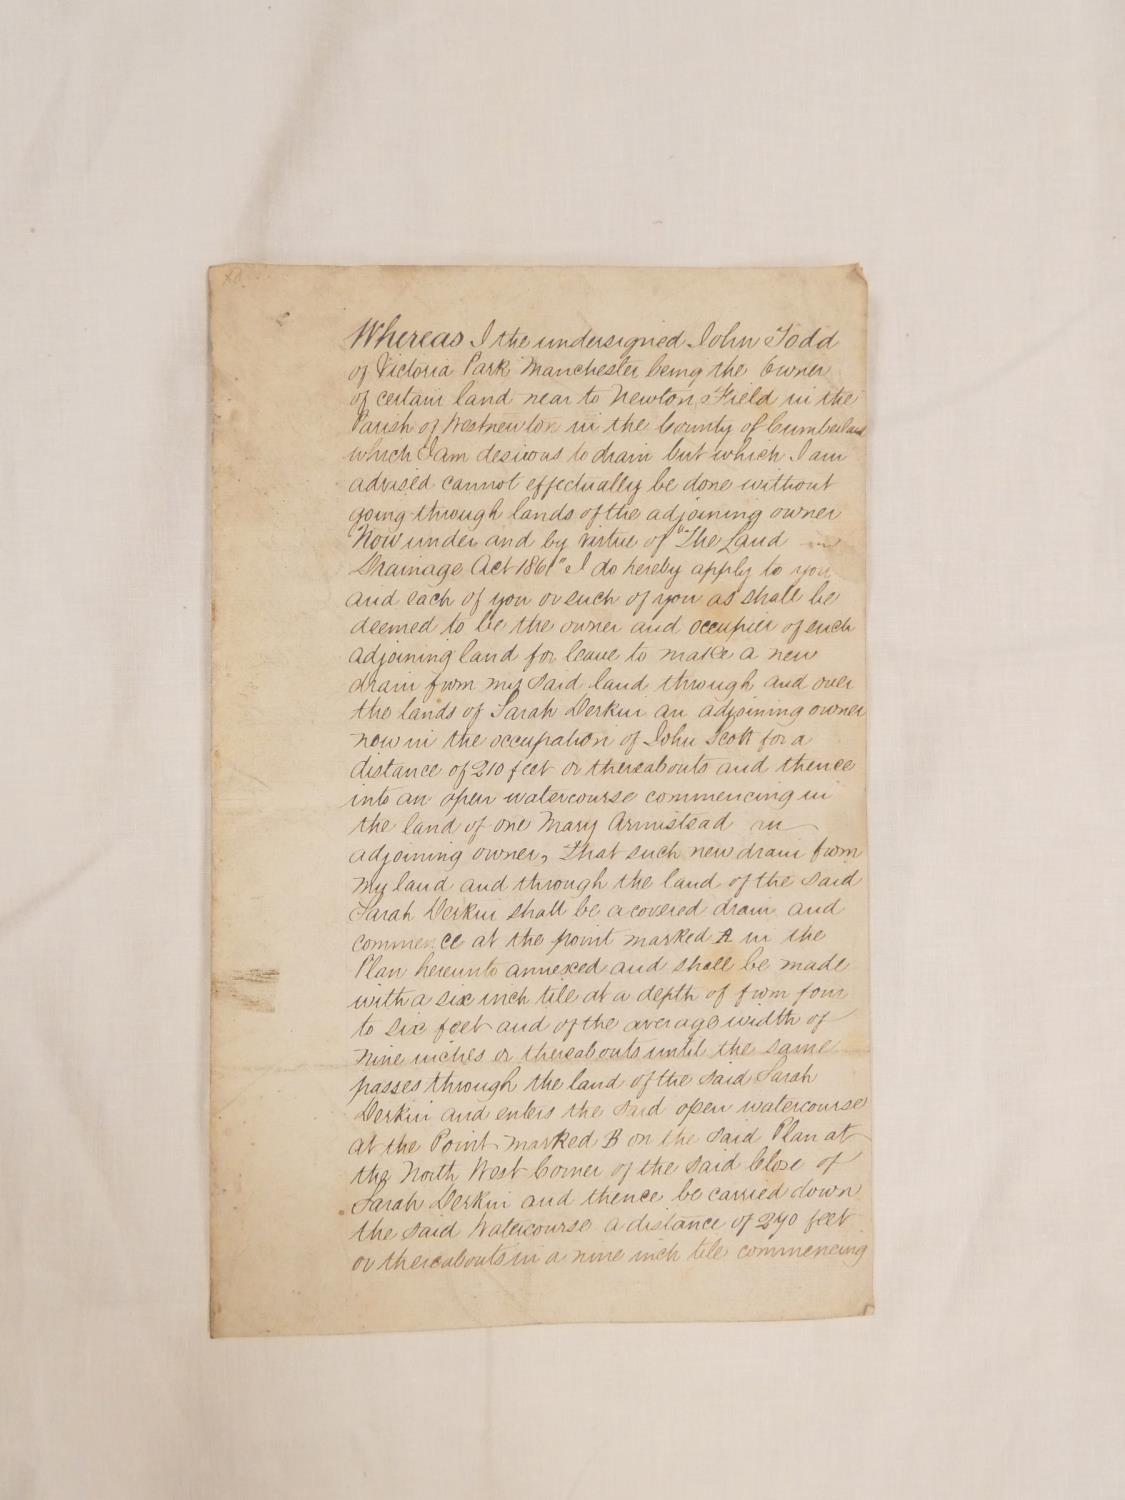 Whereas I the undersigned John Todd
of Victoria Park Manchester being the Owner
of certain land near to Newton Field in the
Parish of Westnewton in the County of Cumberland
which I am desirous to drain but which I am
advised cannot effectually be done without
going through lands of the adjoining owner
Now under and by virtue of "The Land
Drainage Act 1861" I do hereby apply to you
and each of you or such of you as shall be
deemed to be the owner and occupier of such
adjoining land for leave to make a new
drain from my said land through and over
the lands of Sarah Derkin an adjoining owner
now in the occupation of John Scott for a
distance of 210 feet or thereabouts and thence
into an open watercourse commencing in
the land of one Mary Armistead an
adjoining owner, that such new drain from
my land and through the land of the said
Sarah Derkin shall be a covered drain and
commence at the point marked A in the
Plan hereunto annexed and shall be made
with a six inch tile at a depth of from four
to six feet and of the average width of
nine inches or thereabouts until the same
passes through the land of the said Sarah
Derkin and enters the said open watercourse
at the Point marked B on the said Plan at
the North West Corner of the said Close of
Sarah Derkin and thence be carried down
the said Watercourse a distance of 240 feet
or thereabouts in a nine inch tile commencing